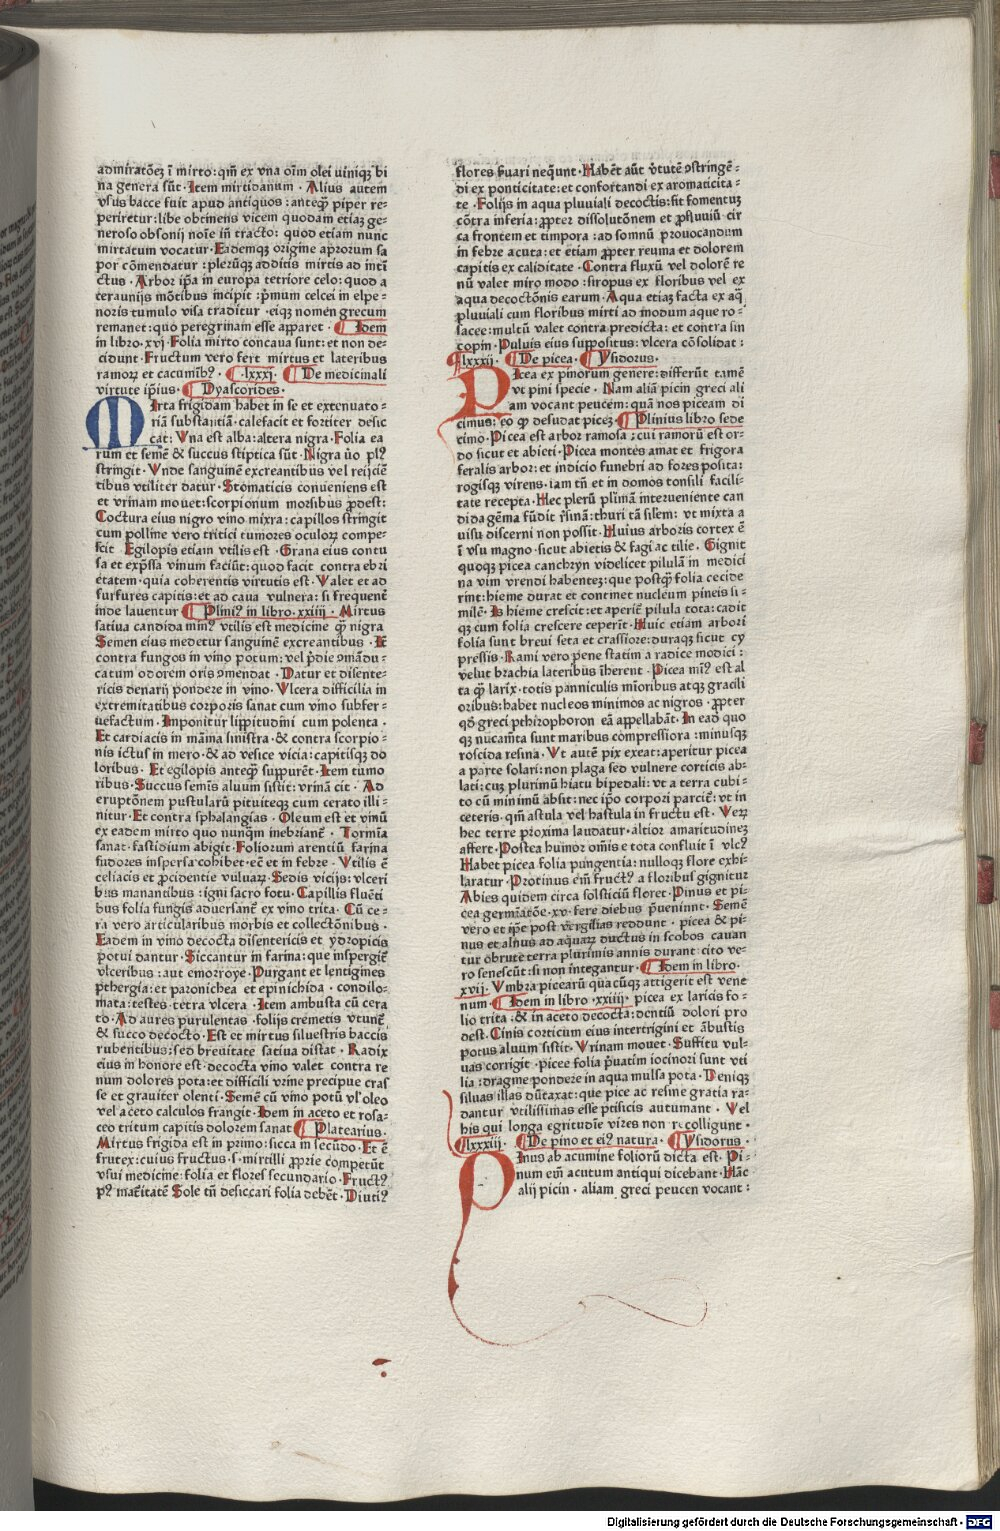 admiratōeʒ ī mirto: qm̄ ex vna oīm olei uiniqꝫ bi
na genera sūt. Item mirtidanum. Alius autem
vsus bacce fuit apud antiquos: anteqꝫ piper re-
periretur: libe obtinens vicem quodam etiaʒ ge-
neroso obsonij noīe in tracto: quod etiam nunc
mirtatum vocatur. Eademqꝫ origine aprorum sa
por cōmendatur: plerūqꝫ additis mirtis ad inti
ctus. Arbor ip̄a in europa tetriore celo: quod a
teraunijs mōtibus incipit: p̄mum celcei in elpe-
nozis tumulo visa traditur. eiqꝫ nomen grecum
remanet: quo peregrinam esse apparet. Idem
in libro.xvj. Folia mirto concaua sunt: et non de-
cidunt. Fructum vero fert mirtus et lateribus
ramoꝝ et cacumībꝰ. .lxxxj. De medicinali
virtute ip̄ius. Dyascorides.
MIrta frigidam habet in se et extenuato-
riā substantiā. calefacit et fortiter desic
cat: Vna est alba: altera nigra. Folia ea
rum et semē & succus stiptica sūt. Nigra ūo plꝰ
stringit. Vnde sanguinē excreantibus vel reijciē
tibus vtiliter datur. Stomaticis conueniens est
et vrinam mouet: scorpionum morsibus ꝓdest:
Coctura eius nigro vino mixra: capillos stringit
cum polline vero tritici tumores oculoꝝ compe-
scit Egilopis etiam vtilis est. Grana eius contu
sa et exp̄ssa vinum faciūt: quod facit contra ebri
etatem. quia coherentis virtutis est. Valet et ad
furfures capitis: et ad caua vulnera: si frequenē
inde lauentur Pliniꝰ in libro.xxiiij. Mirtus
satiua candida minꝰ vtilis est medicine qꝫ nigra
Semen eius medetur sanguinē excreantibus. Iē
contra fungos in vino potum: vel p̄die ꝯmādu-
catum odorem oris ꝯmendat. Datur et disente-
ricis denarij pondere in vino. Vlcera difficilia in
extremitatibus corporis sanat cum vino subfer-
uefactum. Imponitur lippitudini cum polenta.
Et cardiacis in māina sinistra. & contra scorpio-
nis ictus in mero. & ad vesice vicia: capitisqꝫ do
loribus. Et egilopis anteqꝫ suppurēt. Item tumo
ribus. Succus semīs aluum sistit: vrinā cit. Ad
eruptōnem pustularū pituiteqꝫ cum cerato illi-
nitur. Et contra sphalangias. Oleum est et vinū
ex eadem mirto quo nunqꝫm inebriant̄. Tormīa
sanat. fastidium abigit. Foliorum arentiū farina
sudores inspersa cohibet. eē et in febre. Vtilis ē
celiacis et ꝓcidentie vuluaꝝ. Sedis vicijs: vlceri
bus manantibus: igni sacro fotu. Capillis fluēti
bus folia fungis aduersant̄ ex vino trita. Cū ce-
ra vero articularibus morbis et collectōnibus.
Eadem in vino decocta disentericis et ydropicis
p̄otui dantur. Siccantur in farina: que inspergit̄
vlceribus: aut emorroye. Purgant et lentigines
pthergia: et paronichea et epinichida. condilo-
mata: testes: tetra vlcera. Item ambusta cū cera
to. Ad aures purulentas. folijs crematis vtunt̄
& succo decocto. Est et mirtus siluestris baccis
rubentibus: sed breuitate satiua distat. Radix
eius in honore est. decocta vino valet contra re
num dolores pota: et difficili vrine precipue cras
se et grauiter olenti. Semē cū vino potū vl̓ oleo
vel aceto calculos frangit. Idem in aceto et rosa-
ceo tritum capitis dolorem sanat Platearius.
Mirtus frigida est in primo: sicca in secūdo. Et ē
frutex: cuius fructus.s.mirtilli ꝓprie competūt
vsui medicine: folia et flores secundario. Fructꝰ
pꝰ mat̄itatē Sole tn̄ desiccari folia debēt. Diutiꝰ
flores ẜuari nequnt. Habēt aūt v̓tutē ꝯstringē-
di ex ponticitate: et confortandi ex aromaticita-
te. Folijs in aqua pluuiali decoctis: fit fomentuʒ
cōtra inferia: ꝓpter dissolutōnem et ꝓfluuiū cir
ca frontem et timpora: ad somnū prouocandum
in febre acuta: et etiam ꝓpter reuma et dolorem
capitis ex caliditate. Contra fluxū vel dolorē re
nū valet miro modo: siropus ex floribus vel ex
aqua decoctōnis earum. Aqua etiaʒ facta ex aq̄
pluuiali cum floribus mirti ad modum aque ro-
sacee: multū valet contra predicta: et contra sin
copin. Puluis eius suppositus: vlcera cōsolidat:
.lxxxij. De picea. Ysidorus.
PIcea ex pinorum genere: differūt tamē
vt pini specie. Nam aliā picin greci ali
am vocant peucem: quā nos piceam di
cimus: eo qꝫ desudat piceʒ. Plinius libro sede
cimo. Picea est arbor ramosa: cui ramorū est or-
do sicut et abieti. Picea montes amat et frigora
feralis arbor: et indicio funebri ad fores posita:
rogisqꝫ virens. iam tn̄ et in domos tonsili facili-
tate recepta. Hec plerū pl̓imā interueniente can
dida gēma fūdit r̄sinā: thuri tā sil̓em: vt mixta a
uisu discerni non possit. Huius arboris cortex ē
ī vsu magno. sicut abietis & fagi ac tilie. Gignit
quoqꝫ picea canchryn videlicet pilulā in medici
na vim vrendi habenteʒ: que postqꝫ folia cecide
rint: hieme durat et continet nucleum pineis si-
milē. Is hieme crescit: et aperit̄ pilula tota: cadit
qꝫ cum folia crescere ceperīt. Huic etiam arbori
folia sunt breui seta et crassiore: duraqꝫ sicut cy
pressis. Rami vero pene statim a radice modici:
velut brachia lateribus īherent. Picea minꝰ est al
ta qꝫ larix. totis panniculis mīoribus atqꝫ gracili
oribus: habet nucleos minimos ac nigros. ꝓpter
qd̓ greci pthizophoron eā appellabāt. In eadē quo
qꝫ nucam̄ta sunt maribus compressiora: minusqꝫ
roscida resina. Vt autē pix exeat: aperitur picea
a parte solari: non plaga sed vulnere corticis ab-
lati: cuʒ plurimū hiatu bipedali: vt a terra cubi-
to cū minimū absit: nec ip̄o corpori parcit̄: vt in
ceteris. qm̄ astula vel hastula in fructu est. Veꝝ
hec terre proxima laudatur. altior amaritudineʒ
affert. Postea humor om̄is e tota confluit ī vlcꝰ
Habet picea folia pungentia: nulloqꝫ flore exhi-
laratur. Protinus em̄ fructꝰ a floribus gignitur
Abies quidem circa solsticiū floret. Pinus et pi-
cea germīatōe.xv.fere diebus p̄ueninnt. Semē
vero et ip̄e post vergilias reddunt. picea & pi-
nus et alnus ad aquaꝝ ductus in scobos cauan
tur obrute terra plurimis annis durant: cito ve-
ro senescūt: si non integantur. Idem in libro.
xvij. Vmbra picearū quacūqꝫ attigerit est vene
num. Idem in libro.xxiiij. picea ex laricis fo-
lio trita: & in aceto decocta: dentiū dolori pro
dest. Cinis corticum eius intertrigini et ābustis
potus aluum sistit. Vrinam mouet. Suffitu vul-
uas corrigit. picee folia p̄uatim iocinori sunt vti
lia: dragme pondere in aqua mulsa pota. Deniqꝫ
siluas illas dūtaxat: que pice ac resine gratia ra-
dantur vtilissimas esse ptisicis autumant. Vel
his qui longa egritudīe vires non recolligunt.
.lxxxiij. De pino et eiꝰ natura. Ysidorus.
PInus ab acumine foliorū dicta est. Pi-
num em̄ acutum antiqui dicebant. Hāc
alij picin. aliam greci peucen vocant:
Digitalisierung gefördert durch die Deutsche Forschungsgemeinschaft - DFG